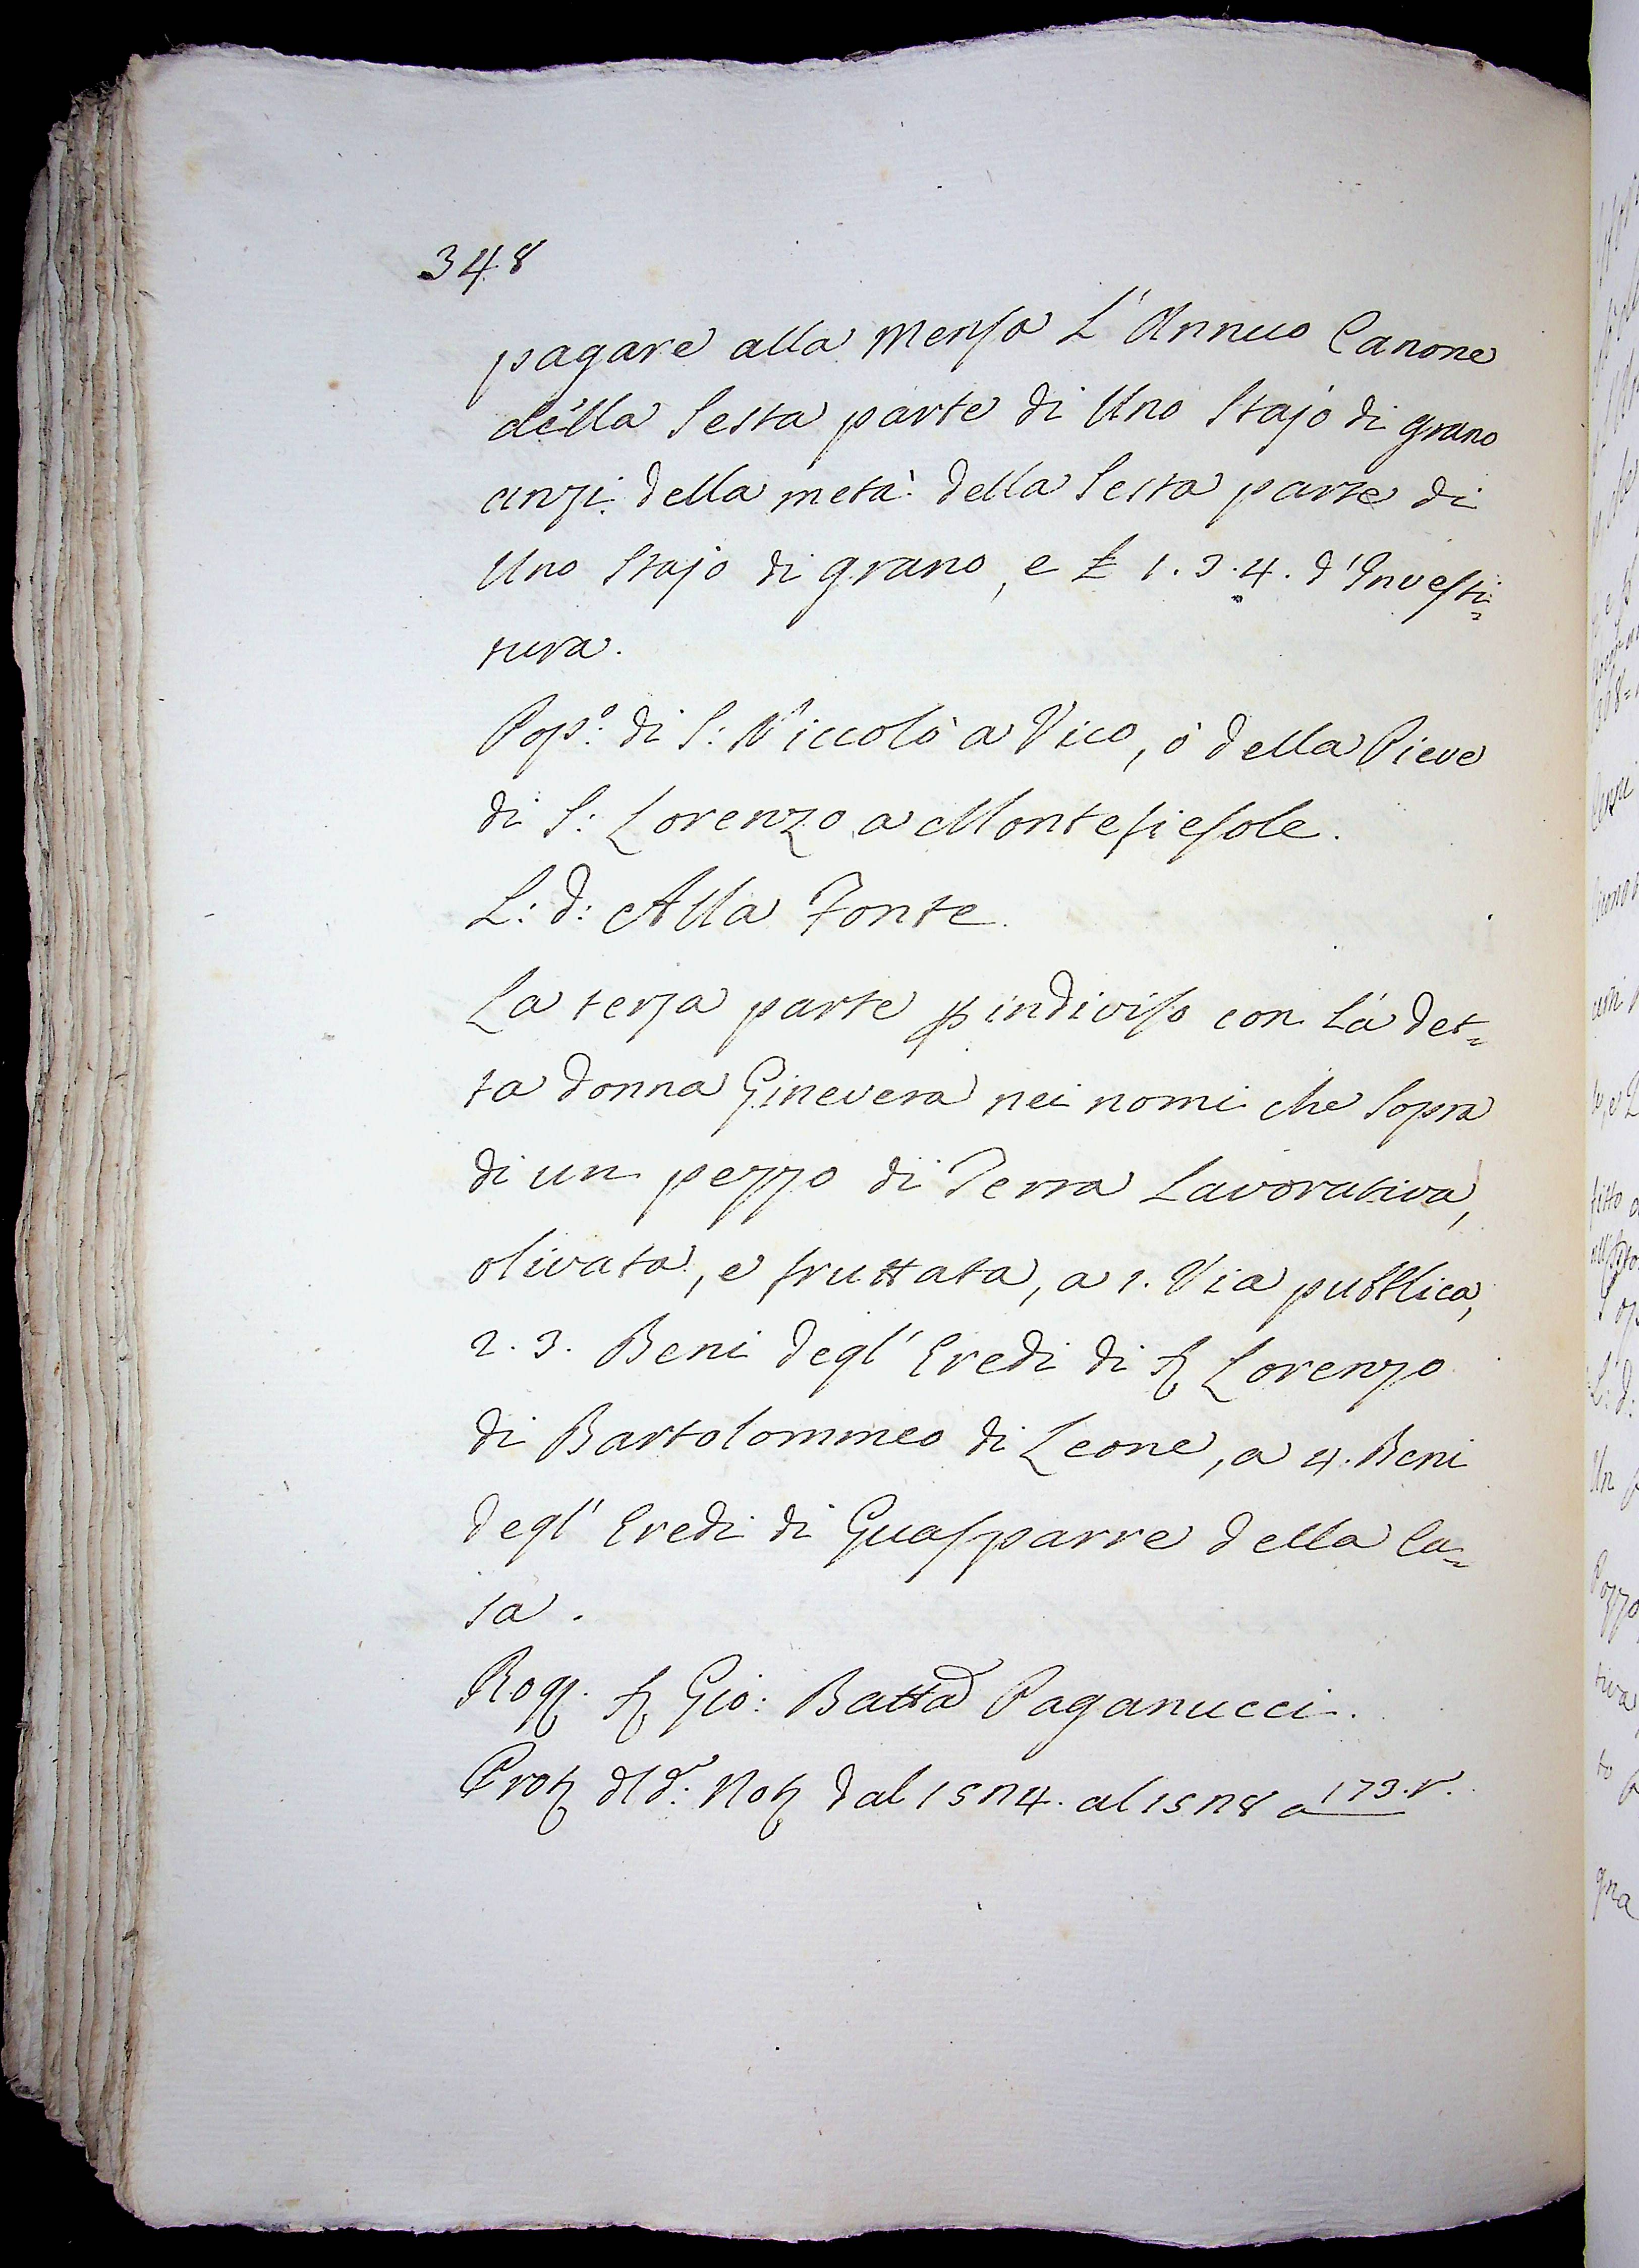 348
pagare alla Mensa L'Annuo Canone
della Sesta parte di Uno Stajo di grano
anzi della metà della Sesta parte di
Uno Stajo di grano, e £ 1. 3. 4. d'Investi=
tura.
Pop.º di S: Niccolò a Vico, ò della Pieve
di S: Lorenzo a Montefiesole.
L: d: Alla Fonte.
La terza parte ꝑ indiviso con La det=
ta donna Ginevera nei nomi che Sopra
di un pezzo di Terra Lavorativa,
olivata, e fruttata, a 1. Via pubblica,
2. 3. Beni degl' Eredi di Sr Lorenzo
di Bartolommeo di Leone, a 4. Beni
degl' Eredi di Guasparre della Ca=
sa.
Rog. Sr Gio: Batta Paganucci.
Prot dl d.º Not dal 1574. al 1578 a 173. r.